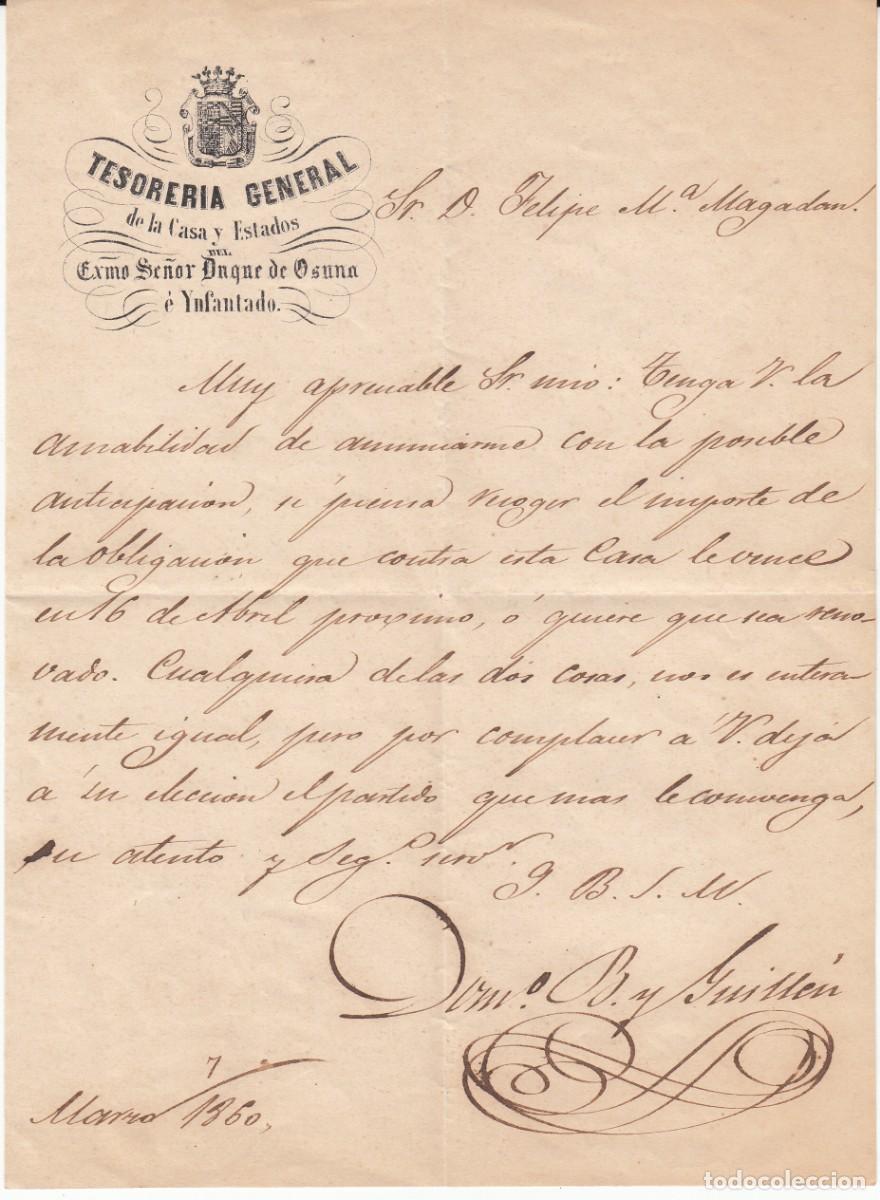 TESORERIA GENERAL
de la Casa y Estados
DEL
Exmo Señor Duque de Osuna
é Ynfantado.
Sr. D. Felipe M.ª Magadan.
Muy apreciable Sr. mio: Tenga V. la
amabilidad de anunciarme con la posible
anticipacion, si piensa recoger el importe de
la obligacion que contra esta Casa le vence
en 16 de Abril proximo, ó quiere que sea reno-
vado. Cualquiera de las dos cosas, nos es entera-
mente igual, pero por complacer á V. deja
á su eleccion el partido que mas le convenga,
su atento y Seg.º serv.r
Q. B. S. M.
Dom.º B. y Guillén
7
Marzo 1860,
todocoleccion.net